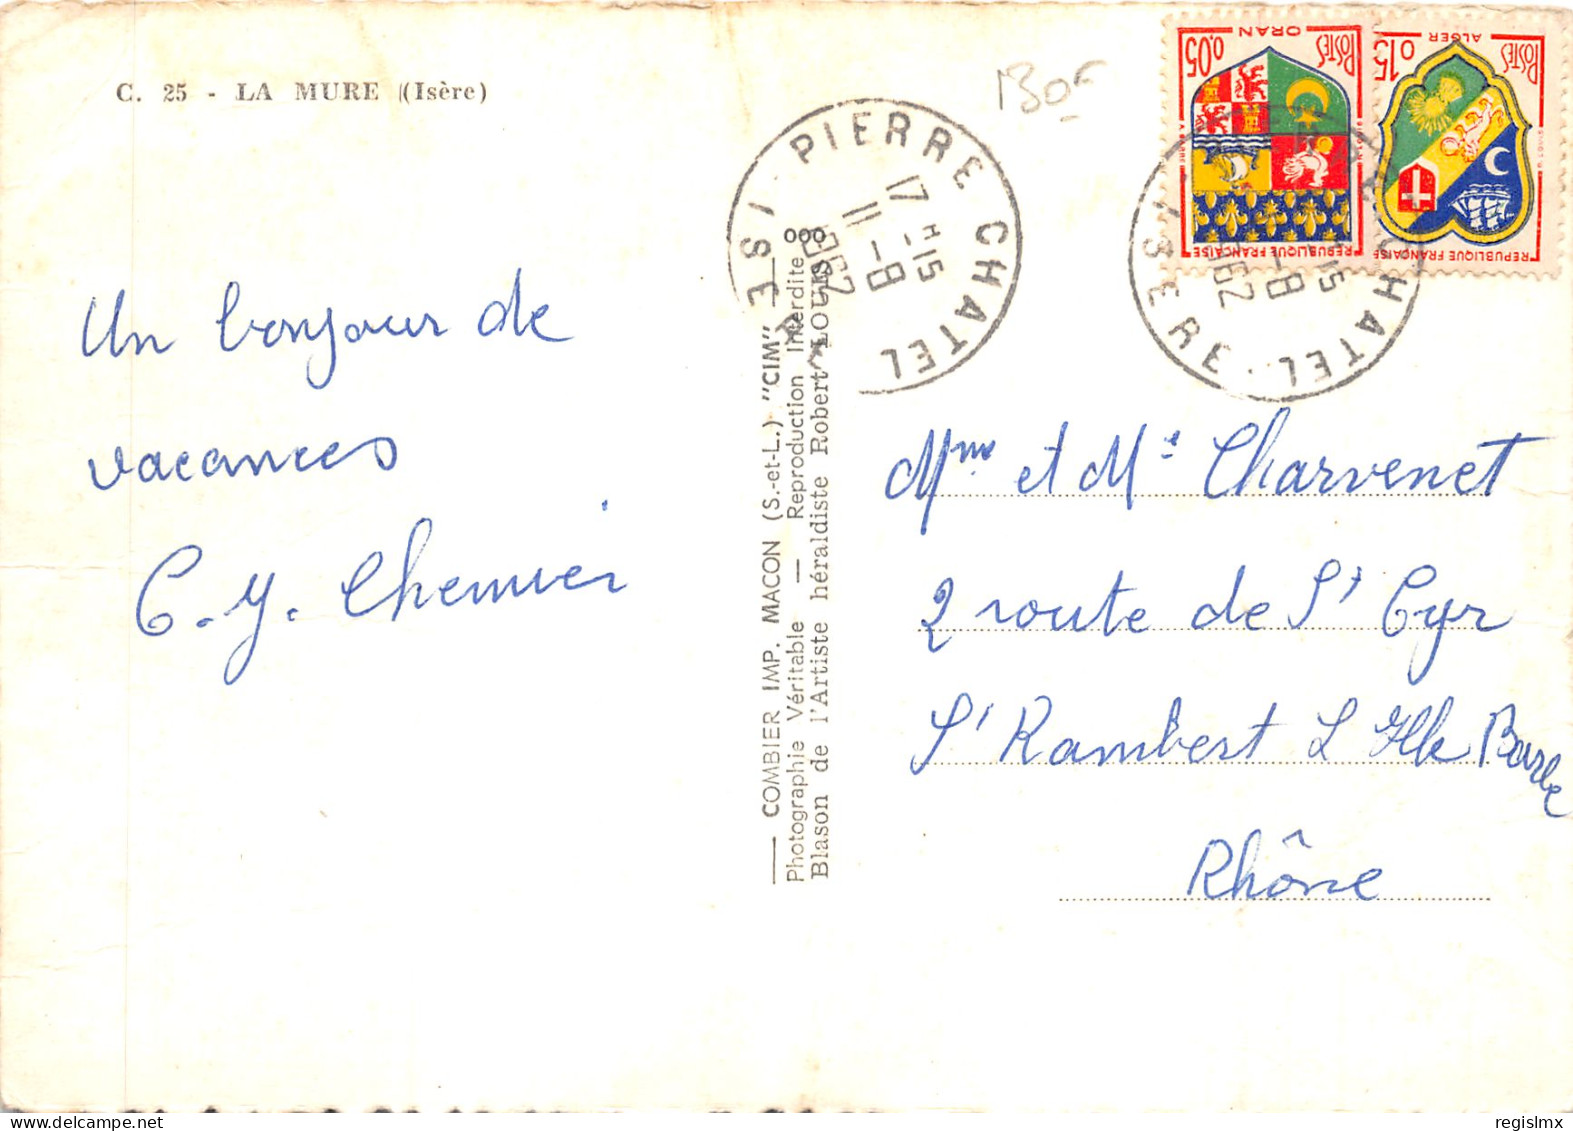 C. 25 - LA MURE (Isère)
Un bonjour de
vacances
C. Y. Chemier
COMBIER IMP. MACON (S.-et-L.) "CIM"
Photographie Véritable — Reproduction Interdite
Blason de l'Artiste héraldiste Robert LOUIS
130F
PIERRE CHATEL
ISERE
17H15
11-8
1962
0,05 POSTES
ORAN
REPUBLIQUE FRANÇAISE
0,15 POSTES
ALGER
REPUBLIQUE FRANÇAISE
CHATEL
ISERE
15
-8
962
Mme et Mr Charvenet
2 route de St Cyr
St Rambert L Ille Barbe
Rhône
regislmx